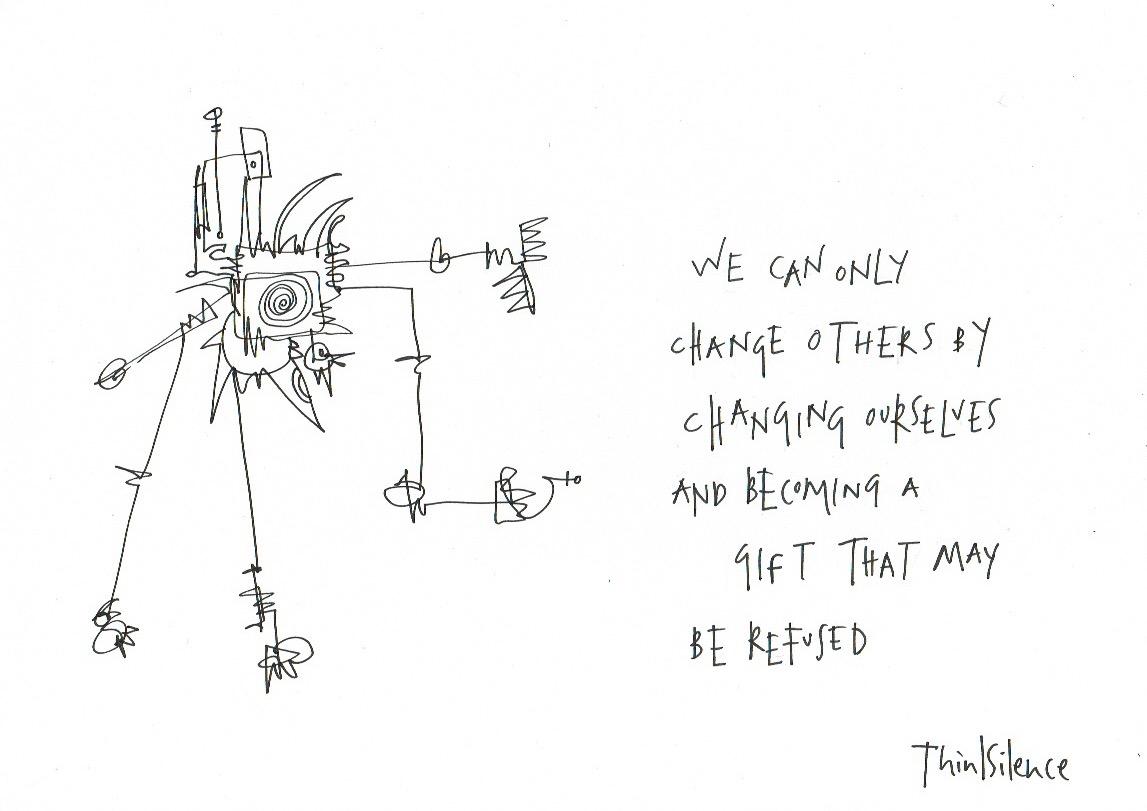 WE CAN ONLY
CHANGE OTHERS BY
CHANGING OURSELVES
AND BECOMING A
GIFT THAT MAY
BE REFUSED
Thin|Silence